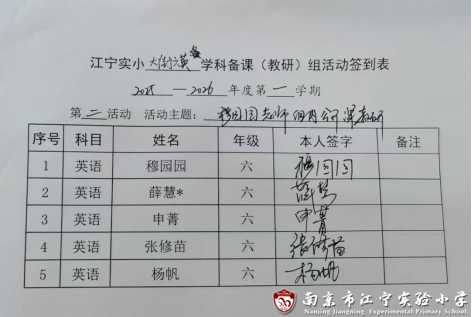 江宁实小大街六英学科备课（教研）组活动签到表
2025—2026年度第一学期
第二活动 活动主题：穆园园老师四月公开课教研
序号 科目 姓名 年级 本人签字 备注
1 英语 穆园园 六 穆园园
2 英语 薛慧* 六 薛慧
3 英语 申菁 六 申菁
4 英语 张修苗 六 张修苗
5 英语 杨帆 六 杨帆
南京市江宁实验小学
Nanjing Jiangning Experimental Primary School